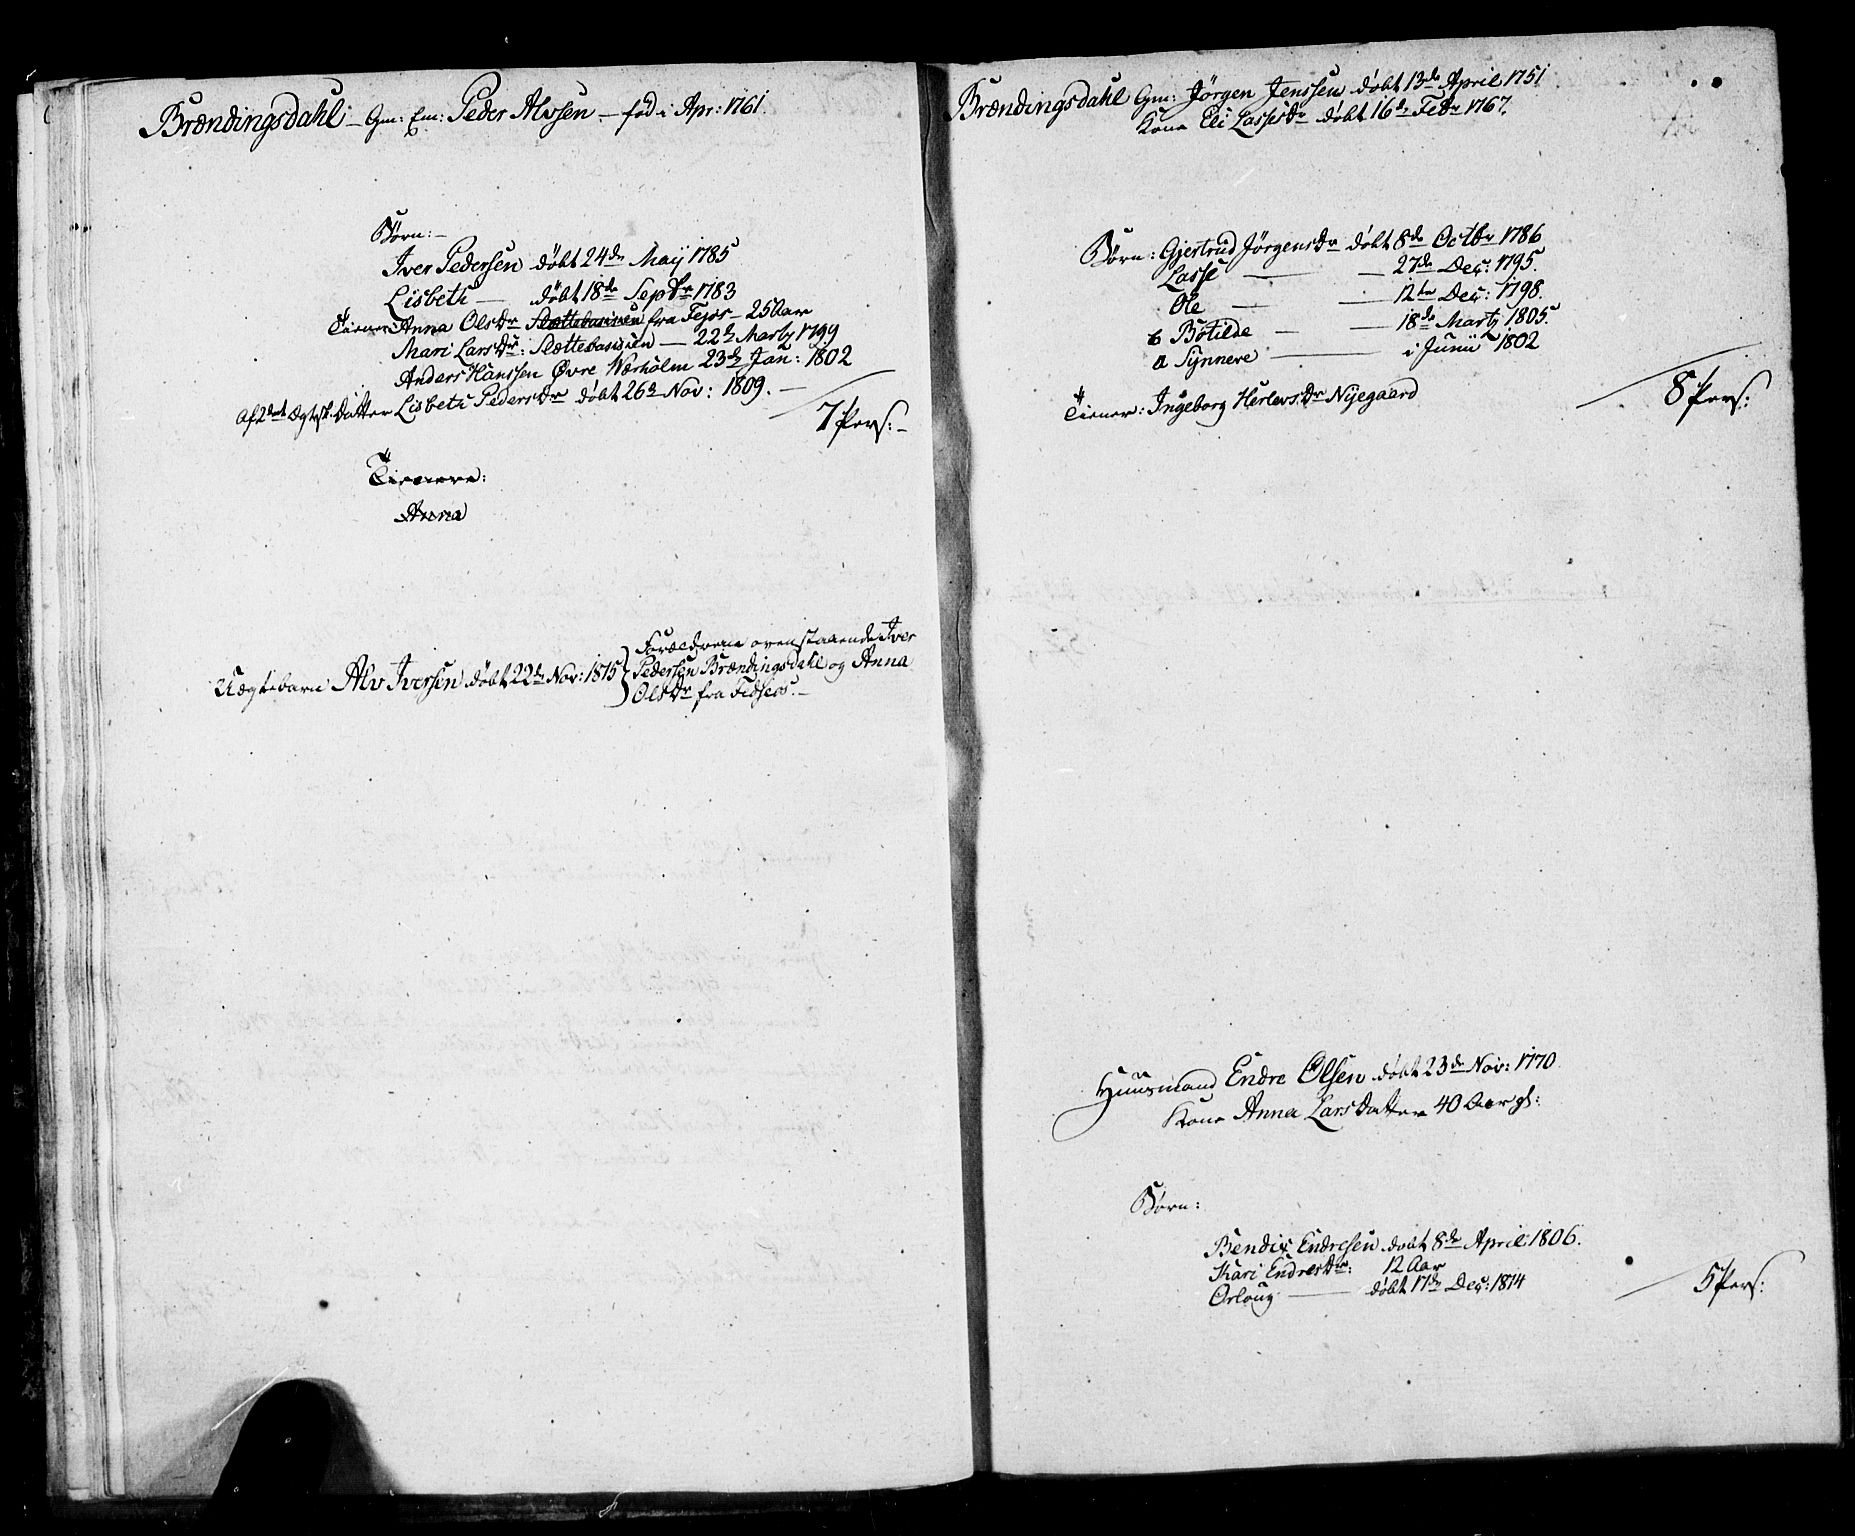 Brændingsdahl – Gm: Em: Peder Alvsen – fød i Apr: 1761.
Børn: –
Iver Pedersen døbt 24de Maij 1785
Lisbeth — døbt 18de Septbr 1783
Tiener Anna OlsDr Slættebassen fra Fejos – 25 Aar
Mari LarsDr: Slættebassen — 22de Martz 1799
Anders Hanssen Øvre Værholm 23de Jan: 1802
Af 2det Ægtsk. Datter Lisbeth PedersDr døbt 26de Nov: 1809. —
7 Pers: –
Tienere:
Anna
Uægtebarn Alv Iversen døbt 22de Nov: 1815
Forældrene ovenstaaende Iver
Pedersen Brændingsdahl og Anna
OlsDr fra Fedseos. –
Brændingsdahl Gm: Jörgen Jenssen døbt 13de April 1751
Kone Eli LassesDr døbt 16de Febr 1767.
Børn: Gjertrud JörgensDr døbt 8de Octbr 1786
Lasse — — 27de Dec: 1795.
Ole — — 12te Dec: 1798.
b Botilde — — 18de Martz 1805.
a Synneve — i Junii 1802
Tiener: Ingeborg HerlevsDr Nijegaard
8 Pers:
Huusmand Endre Olsen døbt 23de Nov: 1770.
Kone Anna Larsdatter 40 Aar gl:
Børn:
Bendix Endresen døbt 8de April 1806.
Kari EndresDr: 12 Aar
Orloug — døbt 17de Dec: 1814
5 Pers: